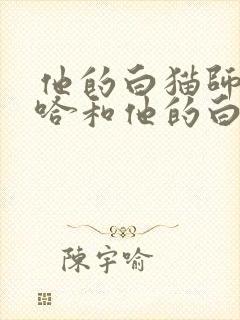 他的白猫師
和他的白
陳宇喻